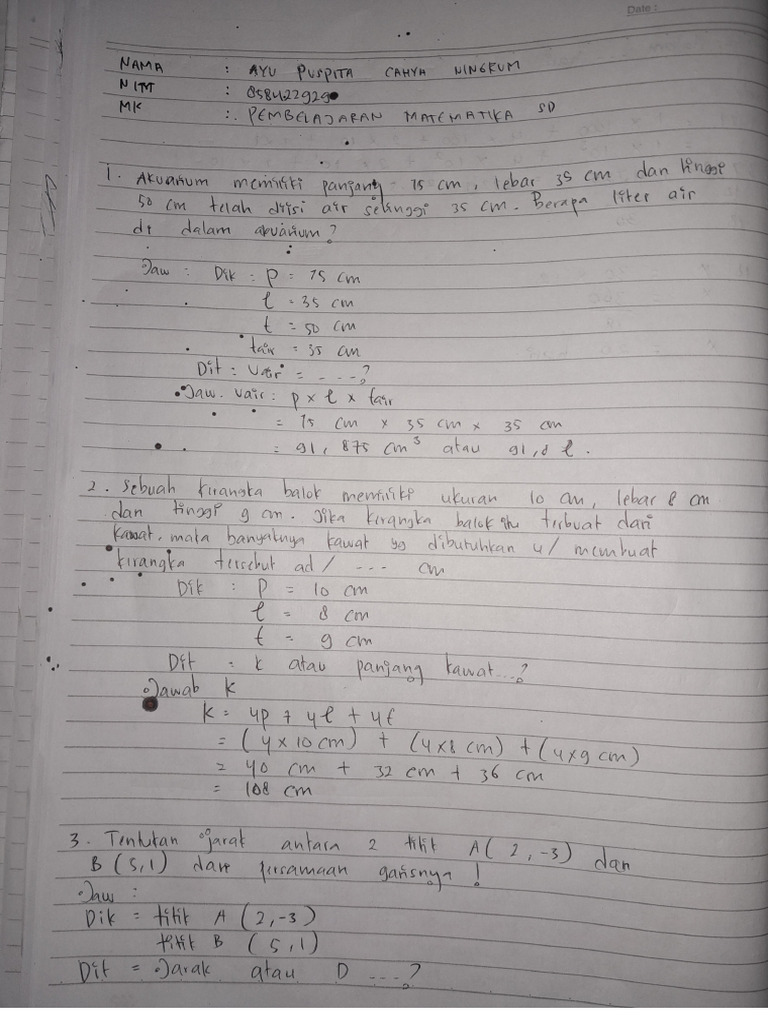 Date:
NAMA : AYU PUSPITA CAHYA NINGRUM
NIM : 858422929
MK : PEMBELAJARAN MATEMATIKA SD
1. Akuarium memiliki panjang 75 cm, lebar 35 cm dan tinggi
50 cm telah diisi air setinggi 35 cm. Berapa liter air
di dalam akuarium?
Jaw : Dik : p = 75 cm
l = 35 cm
t = 50 cm
tair = 35 cm
Dit : Vair = ....?
Jaw. Vair : p x l x tair
= 75 cm x 35 cm x 35 cm
= 91,875 cm³ atau 91,8 l.
2. Sebuah kirangka balok memiliki ukuran 10 cm, lebar 8 cm
dan tinggi 9 cm. Jika kirangka balok itu terbuat dari
kawat, maka banyaknya kawat yg dibutuhkan u/ membuat
kirangka tersebut ad/ --- cm
Dik : P = 10 cm
l = 8 cm
t = 9 cm
Dit = k atau panjang kawat...?
Jawab k
k = 4p + 4l + 4t
= (4 x 10 cm) + (4x8 cm) + (4x9 cm)
= 40 cm + 32 cm + 36 cm
= 108 cm
3. Tentukan jarak antara 2 titik A (2, -3) dan
B (5,1) dan persamaan garisnya !
Jaw :
Dik = titik A (2,-3)
titik B (5,1)
Dit = Jarak atau D ...?